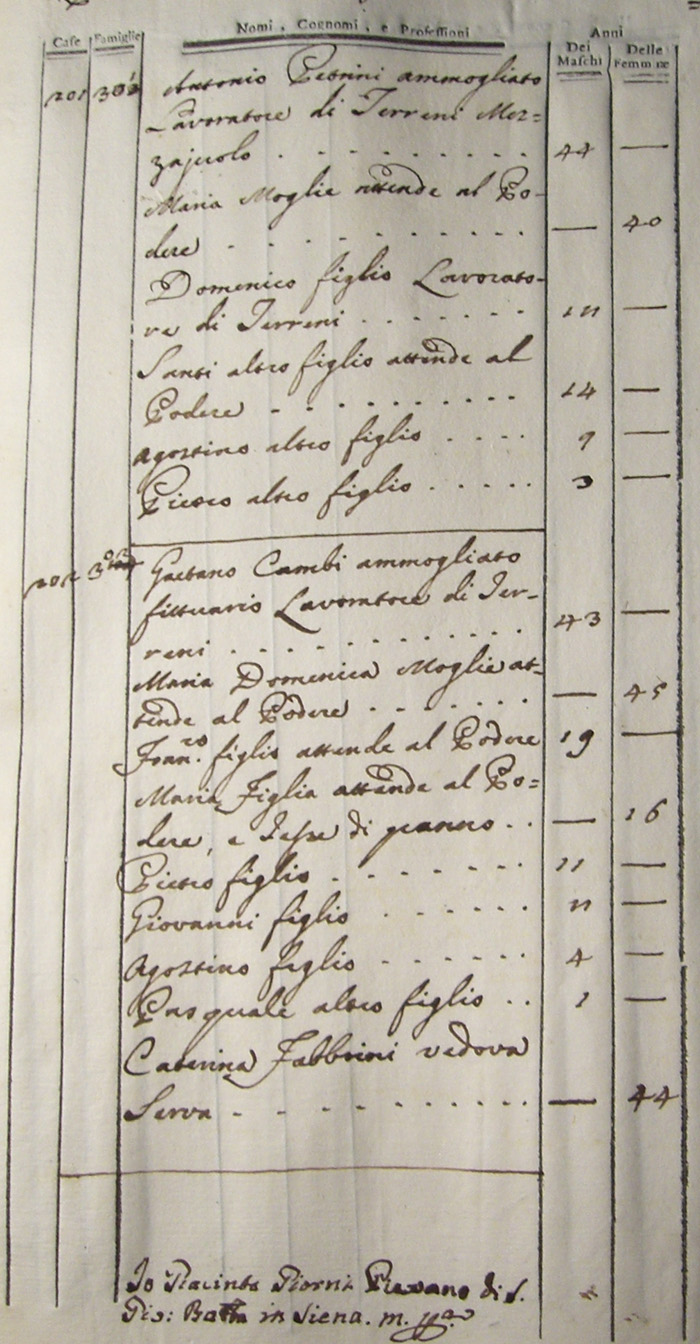 Case Famiglie Nomi, Cognomi, e Professioni Anni Dei Maschi Delle Femmine
201 Antonio Petrini ammogliato
Lavoratore di Terreni Mez=
zajuolo . . . . . . . . . 44 —
Maria Moglie attende al Po-
dere . . . . . . . . — 40
Domenico figlio Lavorato-
re di Terreni . . . . . . . —
Santi altro figlio attende al
Podere . . . . . . . . . . 14 —
Agostino altro figlio . . . . 9 —
Pietro altro figlio . . . . . . 3 —
202 Gaetano Cambi ammogliato
fittuario Lavoratore di Ter-
reni . . . . . . . . . . . . 43 —
Maria Domenica Moglie at=
tende al Podere . . . . . . . — 45
Fran.co figlio attende al Podere 19 —
Maria Figlia attende al Po=
dere, e Tesse di panno . . — 16
Pietro figlio . . . . . . . 11 —
Giovanni figlio . . . . . . —
Agostino figlio . . . . . . 4 —
Pasquale altro figlio . . 1 —
Caterina Fabbrini vedova
Serva . . . . . . . . . — 44
Io Giacinto Piovano di S.
Gio: Batta in Siena. m. pp.a